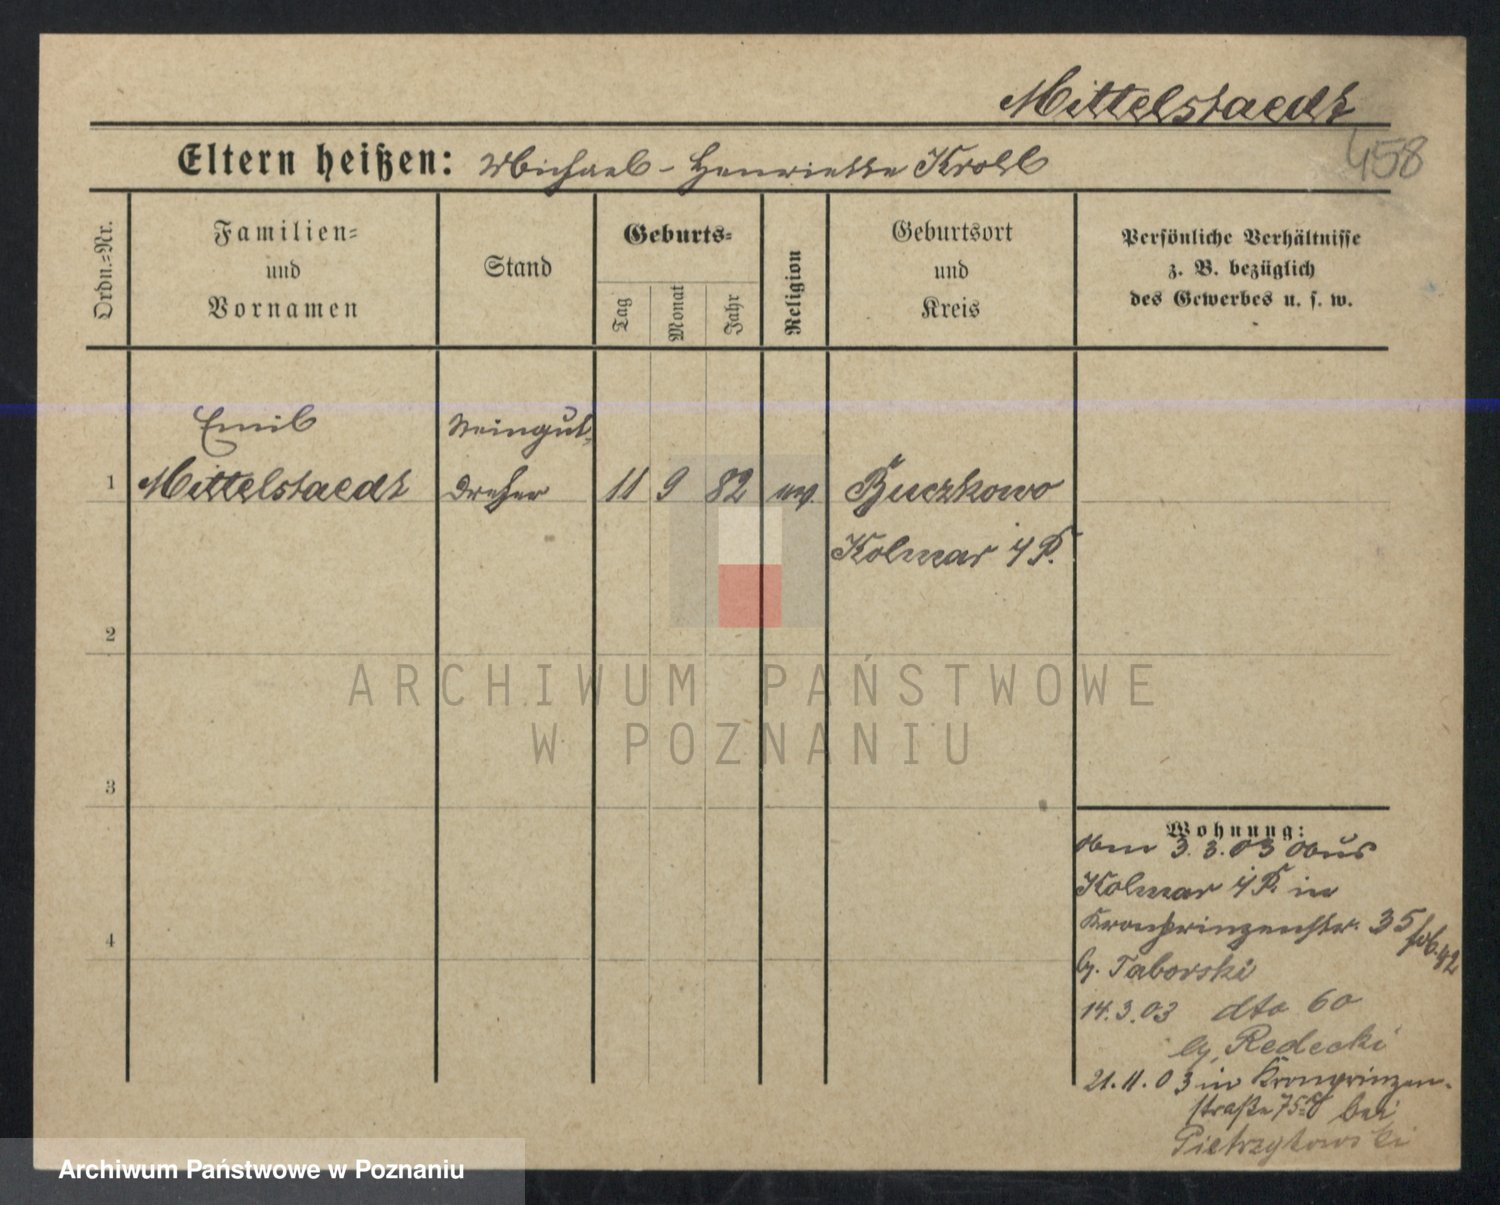 Mittelstaedt
458
Eltern heißen: Michael - Henriette Kroll
Ordn.-Nr.
Familien-
und
Vornamen
Stand
Geburts-
Tag
Monat
Jahr
Religion
Geburtsort
und
Kreis
Persönliche Verhältnisse
z. B. bezüglich
des Gewerbes u. s. w.
Emil
1 Mittelstaedt dreher 11 9 82 ev. Buczkowo
Kolmar i/P.
2
ARCHIWUM PAŃSTWOWE
W POZNANIU
3
4
Wohnung:
3.3.03 aus
Kolmar i/P. in
Kronprinzenstr. 35
b/. Taborski
14.3.03 dto 60
b/. Redecki
21.11.03 in Kronprinzen-
straße 75 bei
Pietrzykowski
Archiwum Państwowe w Poznaniu